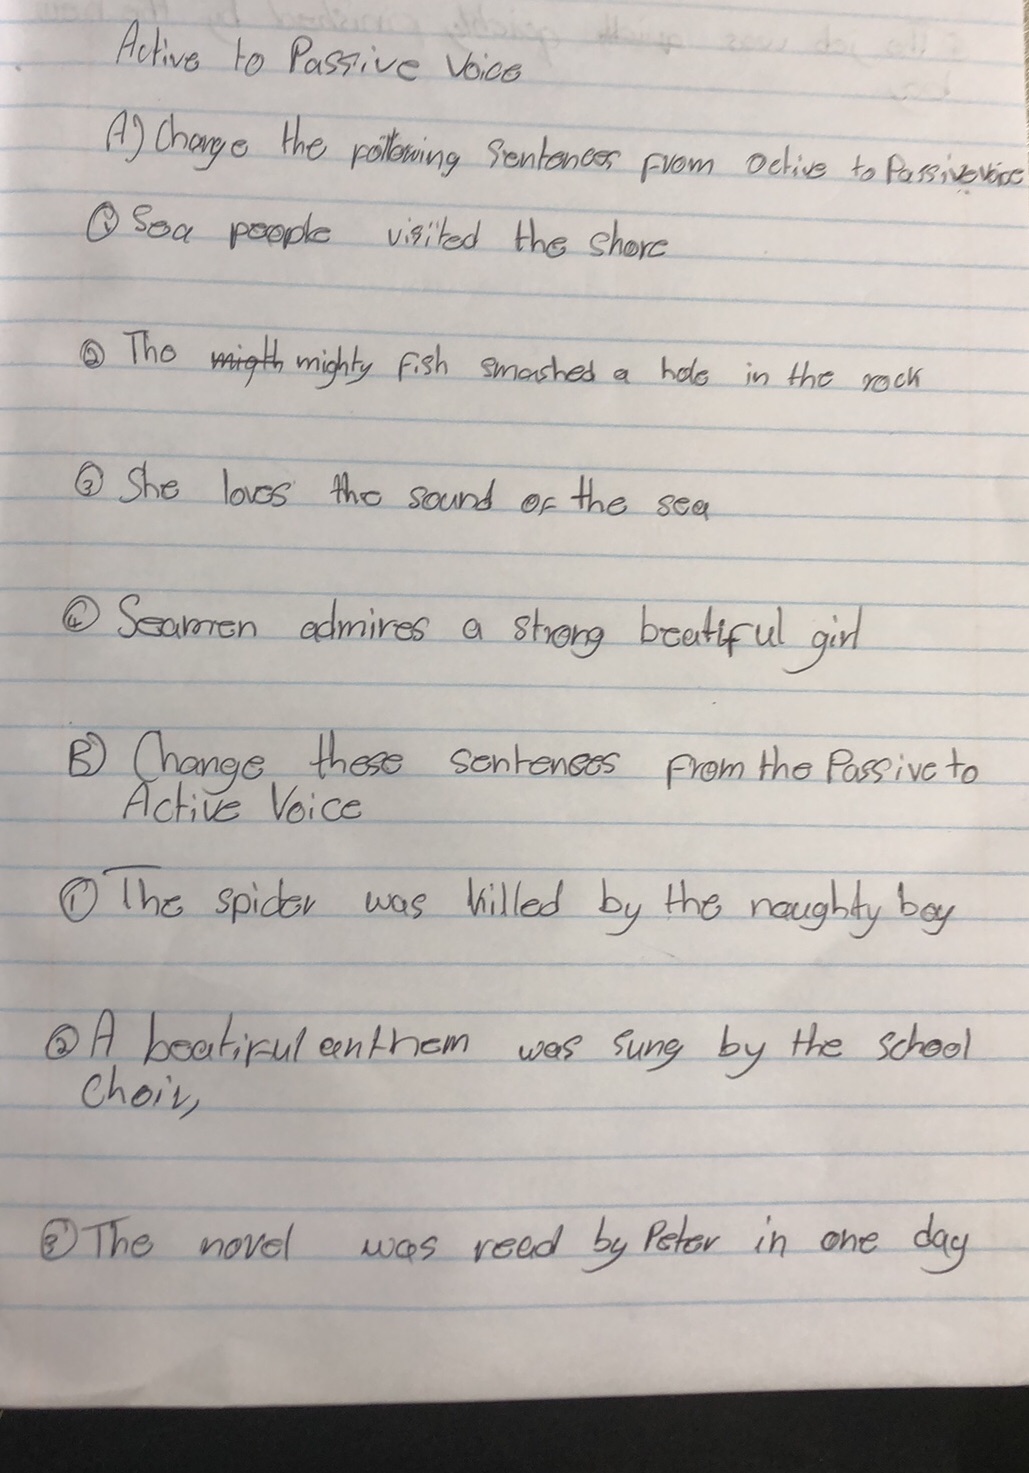 Active to Passive Voice
A) Change the following Sentences from active to Passive voice
① Sea people visited the shore
② The migth mighty fish smashed a hole in the rock
③ She loves the sound of the sea
④ Seamen admires a strong beatiful girl
B) Change these sentences from the Passive to
Active Voice
① The spider was killed by the naughty boy
② A beatiful anthem was sung by the school
Choir,
③ The novel was read by Peter in one day